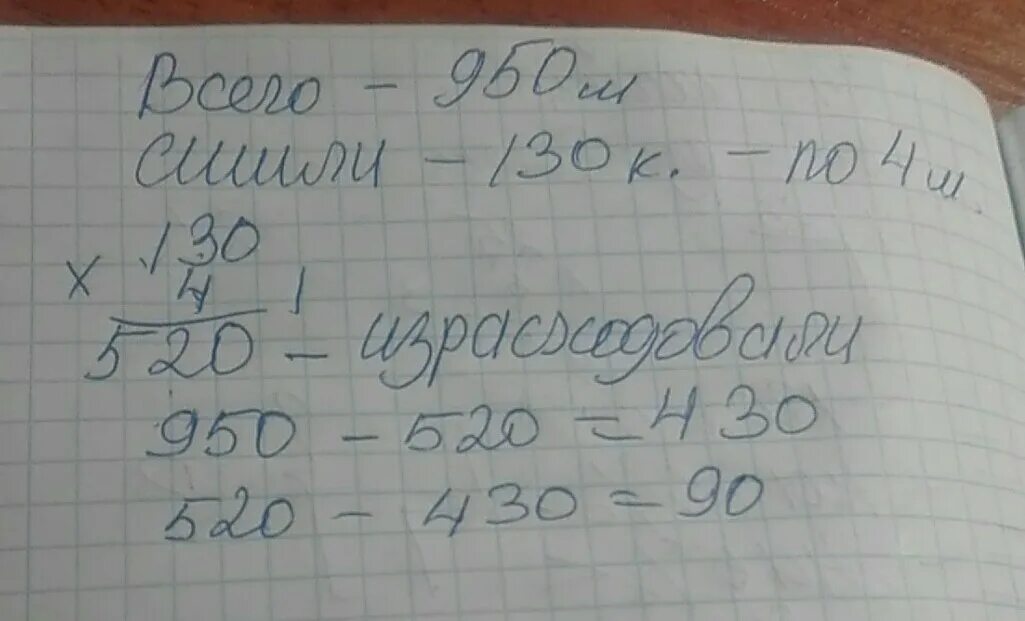 Всего - 950м
Сшили - 130 к. - по 4 м.
130
х 4
520 - израсходовали
950 - 520 = 430
520 - 430 = 90